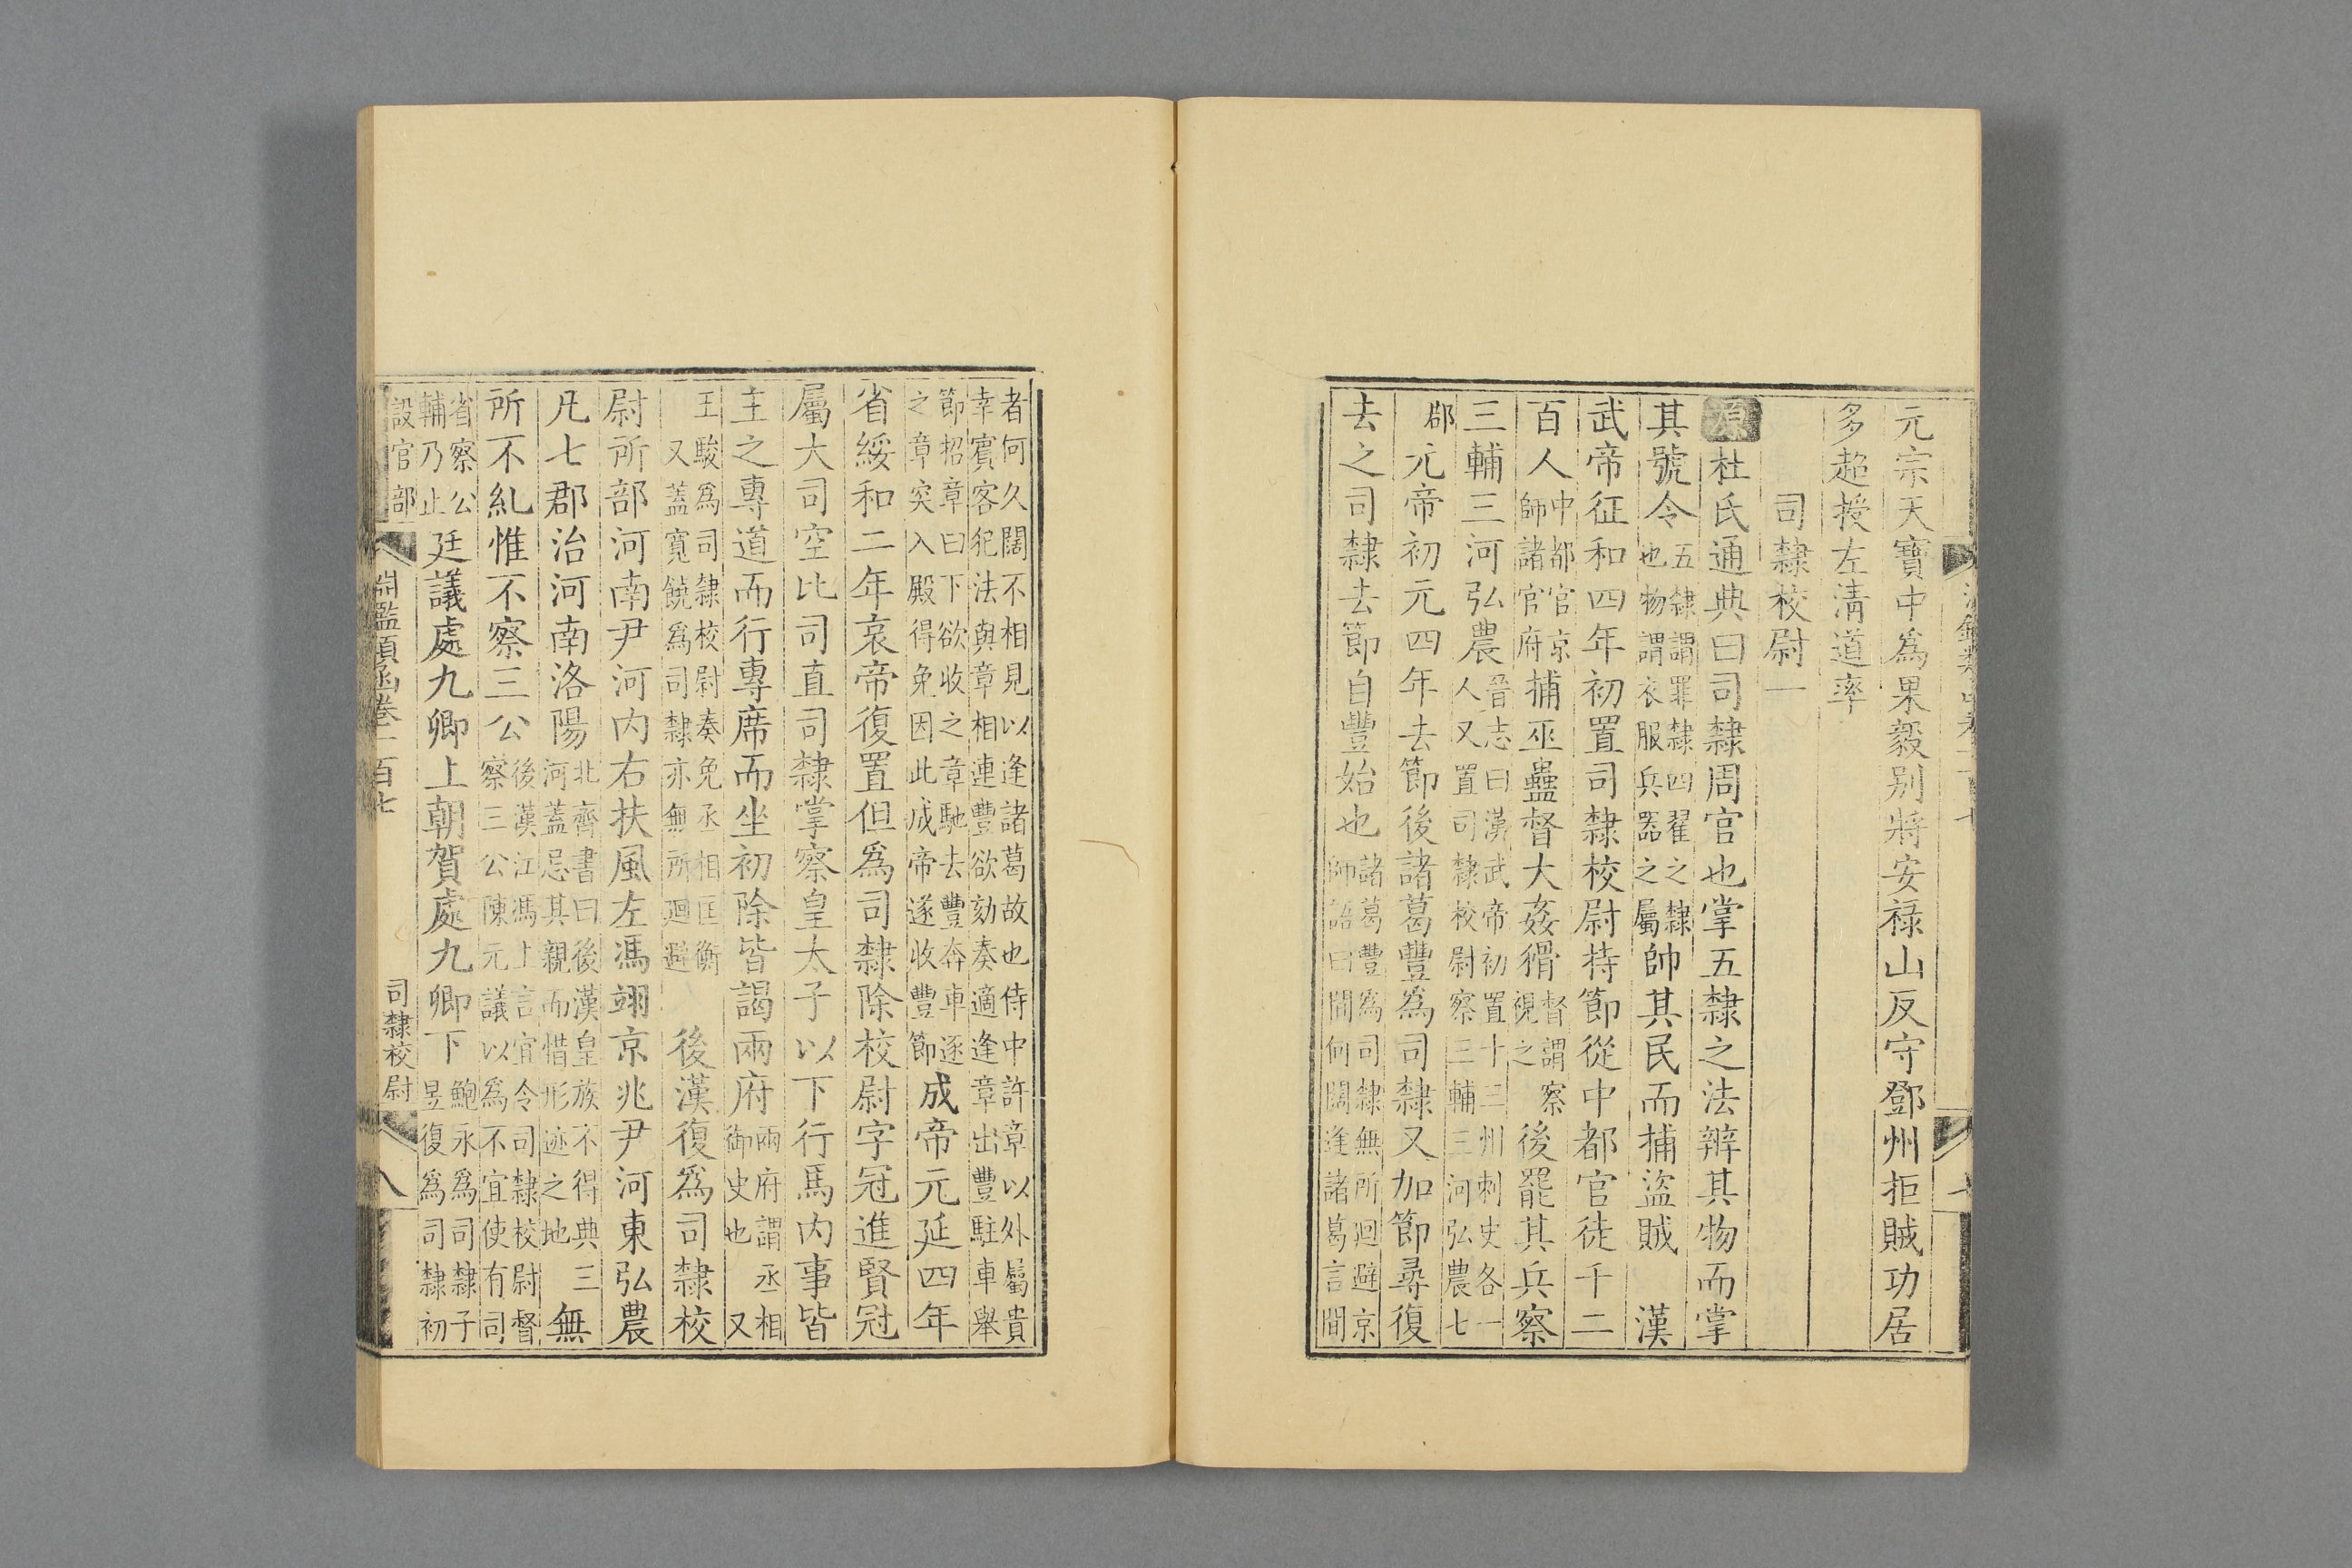 元宗天寶中爲果毅别將安禄山反守鄧州拒賊功居
多超授左清道率
司隸校尉一
原杜氏通典曰司隸周官也掌五隸之法辨其物而掌
其號令五隸謂罪隸四翟之隸也物謂衣服兵器之屬帥其民而捕盜賊　漢
武帝征和四年初置司隸校尉持節從中都官徒千二
百人中都官京師諸官府捕巫蠱督大姦猾督謂察視之後罷其兵察
三輔三河弘農晉志曰漢武帝初置十三州刺史各一人又置司隸校尉察三輔三河弘農七
郡元帝初元四年去節後諸葛豐爲司隸又加節尋復
去之司隸去節自豐始也諸葛豐爲司隸無所迴避京師語曰間何闊逢諸葛言間
者何久闊不相見以逢諸葛故也侍中許章以外屬貴幸賓客犯法與章相連豐欲劾奏適逢章出豐駐車舉
節招章曰下欲收之章馳去豐奔車逐之章突入殿得免因此成帝遂收豐節成帝元延四年
省綏和二年哀帝復置但爲司隸除校尉字冠進賢冠
屬大司空比司直司隸掌察皇太子以下行馬内事皆
主之專道而行專席而坐初除皆謁兩府兩府謂丞相御史也　又
王駿爲司隸校尉奏免丞相匡衡又蓋寬饒爲司隸亦無所迴避　後漢復爲司隸校
尉所部河南尹河内右扶風左馮翊京兆尹河東弘農
凡七郡治河南洛陽北齊書曰後漢皇族不得典三河蓋忌其親而惜形迹之地無
所不糺惟不察三公後漢江馮上言宜令司隸校尉督察三公陳元議以爲不宜使有司
省察公輔乃止廷議處九卿上朝賀處九卿下鮑永爲司隸子昱復爲司隸初
設官部
淵鑑類函卷一百七
司隸校尉
八